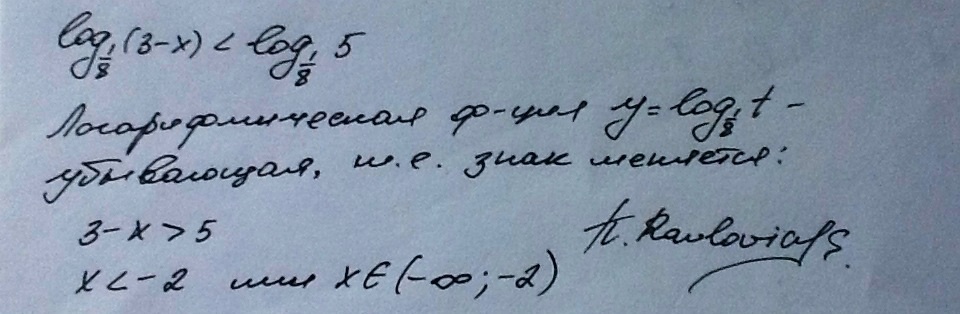 log_{1/8}(3-x) < log_{1/8} 5
Логарифмическая ф-ция y = log_{1/8} t -
убывающая, т.е. знак меняется:
3-x > 5
x < -2 или x ∈ (-∞; -2)